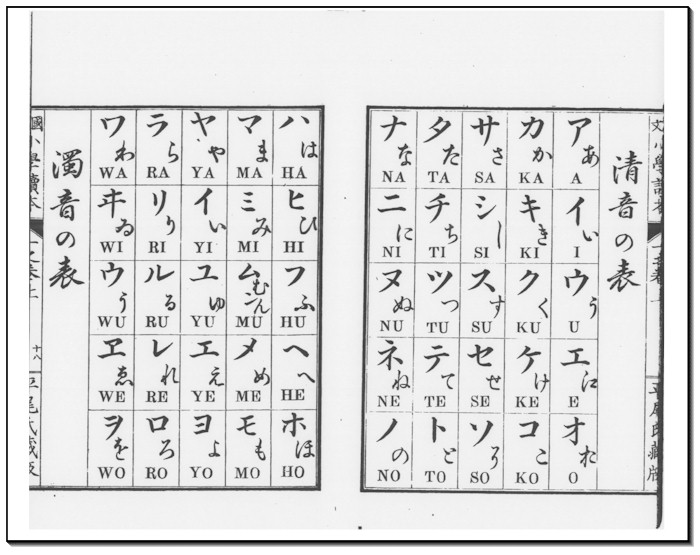 清音の表
ア あ A
イ い I
ウ う U
エ 江 E
オ お O
カ か KA
キ き KI
ク く KU
ケ け KE
コ こ KO
サ さ SA
シ し SI
ス す SU
セ せ SE
ソ そ SO
タ た TA
チ ち TI
ツ つ TU
テ て TE
ト と TO
ナ な NA
ニ に NI
ヌ ぬ NU
ネ ね NE
ノ の NO
ハ は HA
ヒ ひ HI
フ ふ HU
ヘ へ HE
ホ ほ HO
マ ま MA
ミ み MI
ム むん MU
メ め ME
モ も MO
ヤ や YA
イ い YI
ユ ゆ YU
エ え YE
ヨ よ YO
ラ ら RA
リ り RI
ル る RU
レ れ RE
ロ ろ RO
ワ わ WA
ヰ ゐ WI
ウ う WU
ヱ ゑ WE
ヲ を WO
濁音の表
小學讀本
十八
平尾氏藏版